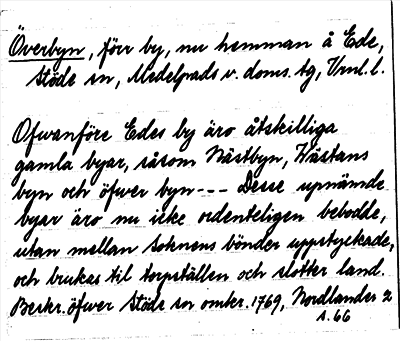 Överbyn, förr by, nu hemman å Ede,
Stöde sn, Medelpads v. doms. tg, Vrnl. l.
Ofwanföre Edes by äro åtskilliga
gamla byar, såsom Nästbyn, Wästans
byn och öfwer byn--- Desse upnämde
byar äro nu icke ordenteligen bebodde,
utan mellan Soknens bönder uppstyckade,
och brukas til torpställen och slotter land.
Beskr. öfwer Stöde sn omkr. 1769, Nordlander 2
s. 66